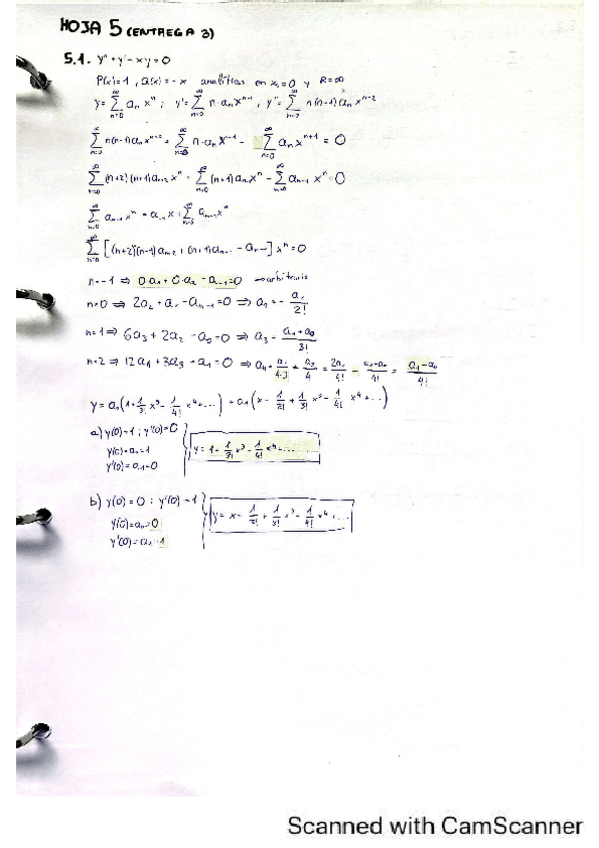 HOJA 5 (ENTREGA 3)
5.1. y''+y'-xy=0
P(x)=1, Q(x)=-x analíticas en x₀=0 y R=∞
y=∑_{n=0}^{∞} aₙxⁿ ; y'=∑_{n=0}^{∞} n·aₙxⁿ⁻¹, y''=∑_{n=0}^{∞} n(n-1)aₙxⁿ⁻²
∑_{n=0}^{∞} n(n-1)aₙxⁿ⁻² + ∑_{n=0}^{∞} n·aₙxⁿ⁻¹ - ∑_{n=0}^{∞} aₙxⁿ⁺¹ = 0
∑_{n=0}^{∞} (n+2)(n+1)aₙ₊₂xⁿ + ∑_{n=0}^{∞} (n+1)aₙxⁿ - ∑_{n=0}^{∞} aₙ₋₁xⁿ = 0
∑_{n=0}^{∞} aₙ₋₁xⁿ = a₋₁x ∑ aₙ₋₁xⁿ
∑ [(n+2)(n+1)aₙ₊₂ + (n+1)aₙ₊₁ - aₙ₋₁]xⁿ=0
n=-1 ⇒ 0·a₁+0·a₂-a₋₁=0 →arbitrario
n=0 ⇒ 2a₂+a₁-aₙ₋₁=0 ⇒ a₂=-a₁/2!
n=1 ⇒ 6a₃+2a₂-a₀=0 ⇒ a₃=(a₁+a₀)/3!
n=2 ⇒ 12a₄+3a₃+a₁=0 ⇒ a₄=a₁/4·3 + a₃/4 = 2a₁/4! - (a₁+a₀)/4! = (a₁-a₀)/4!
y=a₀(1+1/3! x³-1/4! x⁴+...)+a₁(x-1/2!+1/3! x³-1/4! x⁴+...)
a) y(0)=1 ; y'(0)=0
y(0)=a₀=1
y'(0)=a₁=0
y=1+1/3! x³-1/4! x⁴+...
b) y(0)=0 ; y'(0)=1
y(0)=a₀=0
y'(0)=a₁=1
y=x-1/2!+1/3! x³-1/4! x⁴+...
Scanned with CamScanner